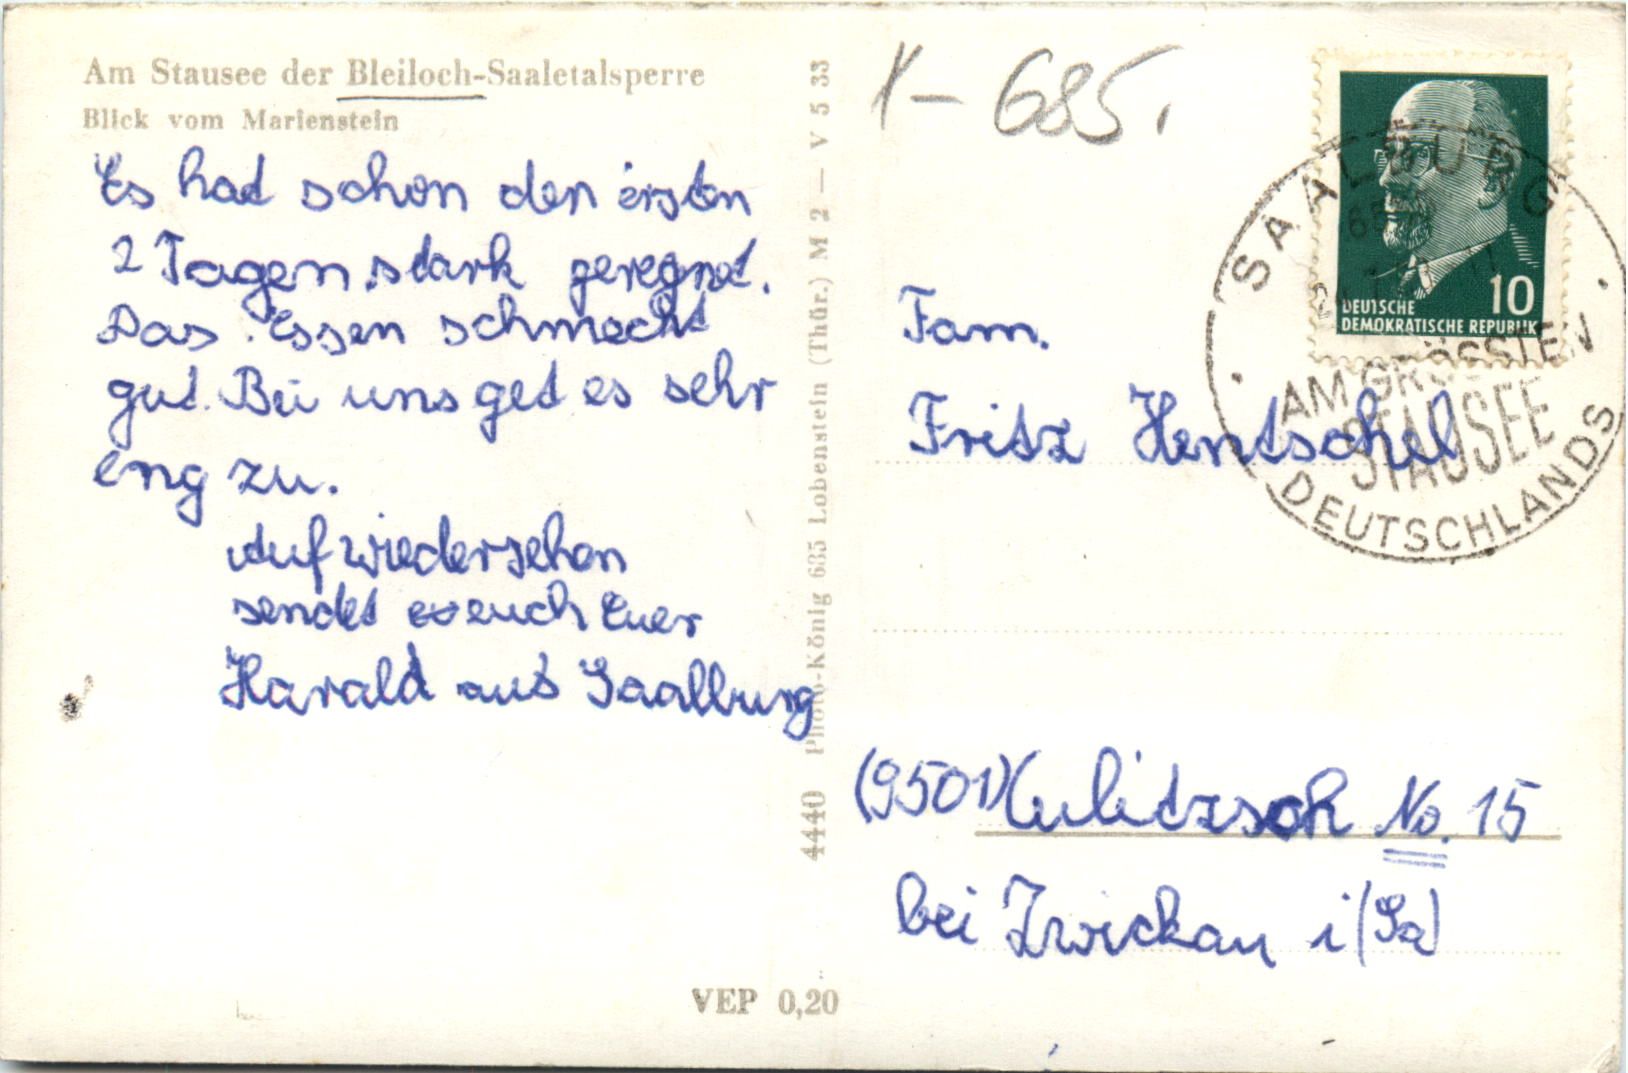 Am Stausee der Bleiloch-Saaletalsperre
Blick vom Marienstein
Es had schon den ersten
2 Tagen stark geregnet.
Das Essen schmeckt
gut. Bei uns get es sehr
eng zu.
Auf wiedersehen
sendet euch Euer
Harald aus Saalburg
4440 Photo-König 685 Lobenstein (Thür.) M 2 — V 5 33
VEP 0,20
Y - 685.
DEUTSCHE
DEMOKRATISCHE REPUBLIK
10
SAALBURG
AM GRÖSSTEN
STAUSEE
DEUTSCHLANDS
Fam.
Fritz Hentschel
(9501) Culitzsch No. 15
bei Zwickau i/(Sa)